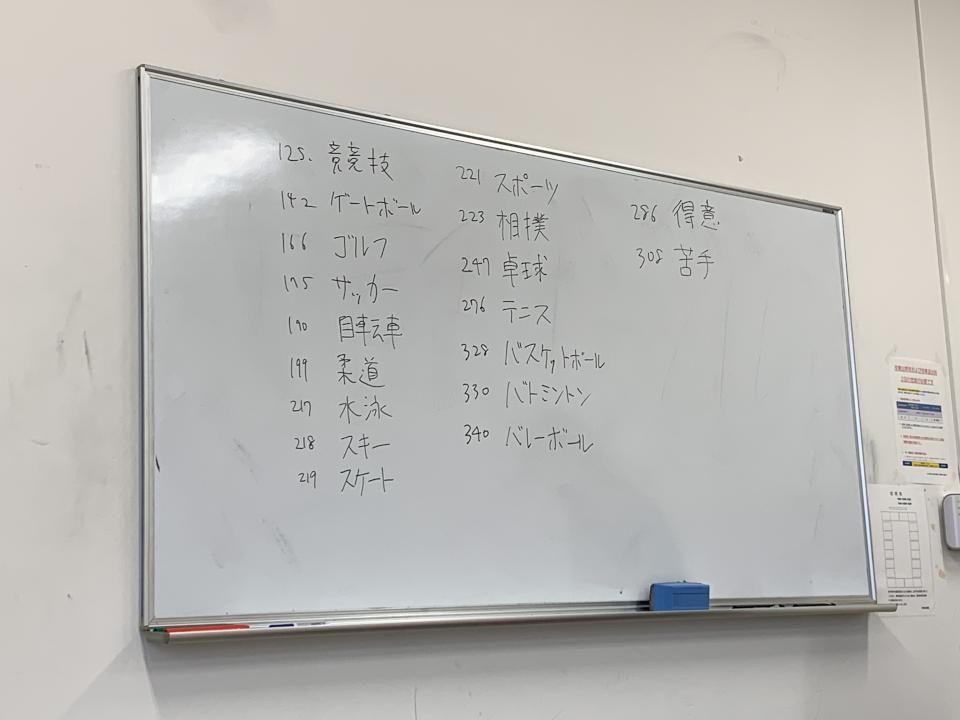 125. 競技
142 ゲートボール
166 ゴルフ
175 サッカー
190 自転車
199 柔道
217 水泳
218 スキー
219 スケート
221 スポーツ
223 相撲
247 卓球
276 テニス
328 バスケットボール
330 バドミントン
340 バレーボール
286 得意
308 苦手